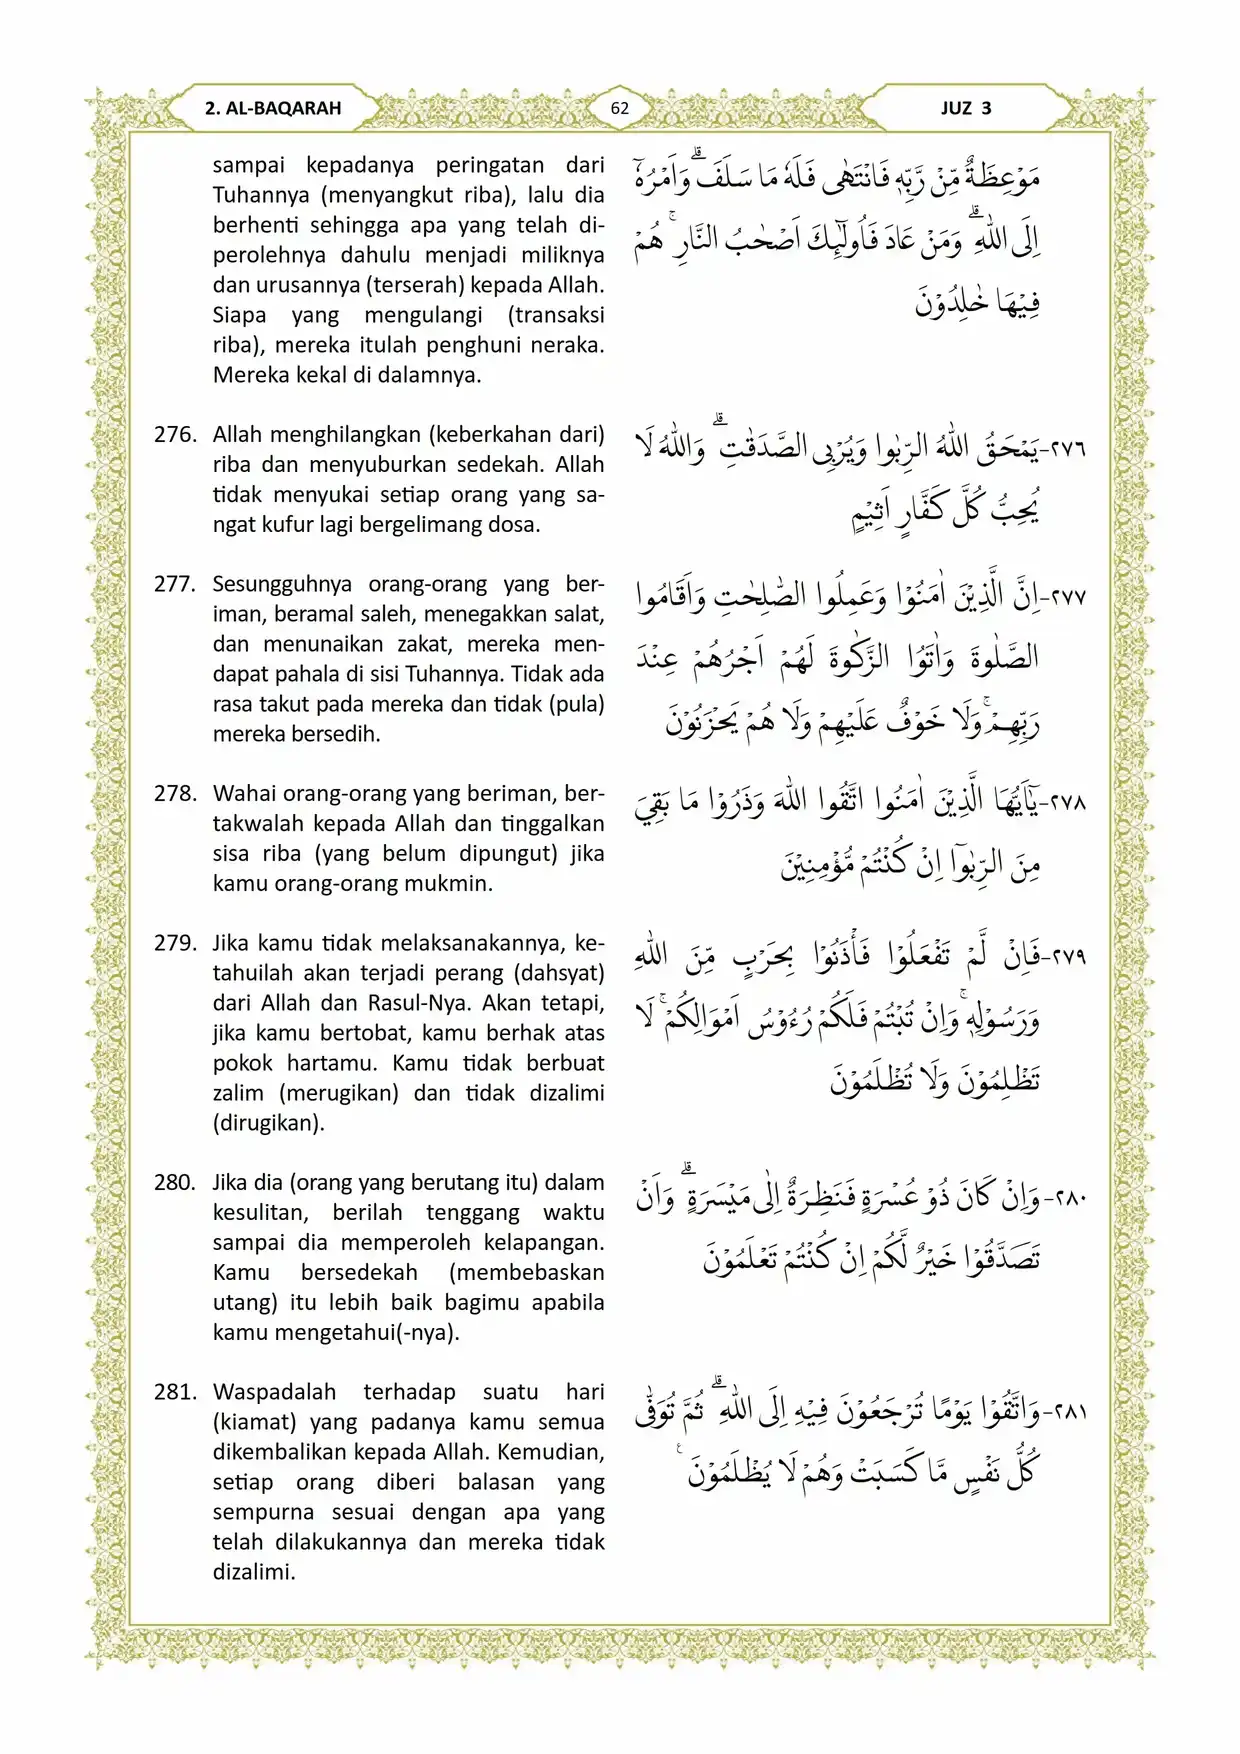 2. AL-BAQARAH
62
JUZ 3
sampai kepadanya peringatan dari
Tuhannya (menyangkut riba), lalu dia
berhenti sehingga apa yang telah di-
perolehnya dahulu menjadi miliknya
dan urusannya (terserah) kepada Allah.
Siapa yang mengulangi (transaksi
riba), mereka itulah penghuni neraka.
Mereka kekal di dalamnya.
مَوْعِظَةٌ مِّنْ رَّبِّهٖ فَانْتَهٰى فَلَهٗ مَا سَلَفَۗ وَاَمْرُهٗٓ
اِلَى اللّٰهِ ۗ وَمَنْ عَادَ فَاُولٰۤىِٕكَ اَصْحٰبُ النَّارِ ۚ هُمْ
فِيْهَا خٰلِدُوْنَ
276. Allah menghilangkan (keberkahan dari)
riba dan menyuburkan sedekah. Allah
tidak menyukai setiap orang yang sa-
ngat kufur lagi bergelimang dosa.
٢٧٦-يَمْحَقُ اللّٰهُ الرِّبٰوا وَيُرْبِى الصَّدَقٰتِ ۗ وَاللّٰهُ لَا
يُحِبُّ كُلَّ كَفَّارٍ اَثِيْمٍ
277. Sesungguhnya orang-orang yang ber-
iman, beramal saleh, menegakkan salat,
dan menunaikan zakat, mereka men-
dapat pahala di sisi Tuhannya. Tidak ada
rasa takut pada mereka dan tidak (pula)
mereka bersedih.
٢٧٧-اِنَّ الَّذِيْنَ اٰمَنُوْا وَعَمِلُوا الصّٰلِحٰتِ وَاَقَامُوا
الصَّلٰوةَ وَاٰتَوُا الزَّكٰوةَ لَهُمْ اَجْرُهُمْ عِنْدَ
رَبِّهِمْۚ وَلَا خَوْفٌ عَلَيْهِمْ وَلَا هُمْ يَحْزَنُوْنَ
278. Wahai orang-orang yang beriman, ber-
takwalah kepada Allah dan tinggalkan
sisa riba (yang belum dipungut) jika
kamu orang-orang mukmin.
٢٧٨-يٰٓاَيُّهَا الَّذِيْنَ اٰمَنُوا اتَّقُوا اللّٰهَ وَذَرُوْا مَا بَقِيَ
مِنَ الرِّبٰوٓا اِنْ كُنْتُمْ مُّؤْمِنِيْنَ
279. Jika kamu tidak melaksanakannya, ke-
tahuilah akan terjadi perang (dahsyat)
dari Allah dan Rasul-Nya. Akan tetapi,
jika kamu bertobat, kamu berhak atas
pokok hartamu. Kamu tidak berbuat
zalim (merugikan) dan tidak dizalimi
(dirugikan).
٢٧٩-فَاِنْ لَّمْ تَفْعَلُوْا فَأْذَنُوْا بِحَرْبٍ مِّنَ اللّٰهِ
وَرَسُوْلِهٖۚ وَاِنْ تُبْتُمْ فَلَكُمْ رُءُوْسُ اَمْوَالِكُمْۚ لَا
تَظْلِمُوْنَ وَلَا تُظْلَمُوْنَ
280. Jika dia (orang yang berutang itu) dalam
kesulitan, berilah tenggang waktu
sampai dia memperoleh kelapangan.
Kamu bersedekah (membebaskan
utang) itu lebih baik bagimu apabila
kamu mengetahui(-nya).
٢٨٠-وَاِنْ كَانَ ذُوْ عُسْرَةٍ فَنَظِرَةٌ اِلٰى مَيْسَرَةٍ ۗ وَاَنْ
تَصَدَّقُوْا خَيْرٌ لَّكُمْ اِنْ كُنْتُمْ تَعْلَمُوْنَ
281. Waspadalah terhadap suatu hari
(kiamat) yang padanya kamu semua
dikembalikan kepada Allah. Kemudian,
setiap orang diberi balasan yang
sempurna sesuai dengan apa yang
telah dilakukannya dan mereka tidak
dizalimi.
٢٨١-وَاتَّقُوْا يَوْمًا تُرْجَعُوْنَ فِيْهِ اِلَى اللّٰهِ ۗ ثُمَّ تُوَفّٰى
كُلُّ نَفْسٍ مَّا كَسَبَتْ وَهُمْ لَا يُظْلَمُوْنَ ࣖ